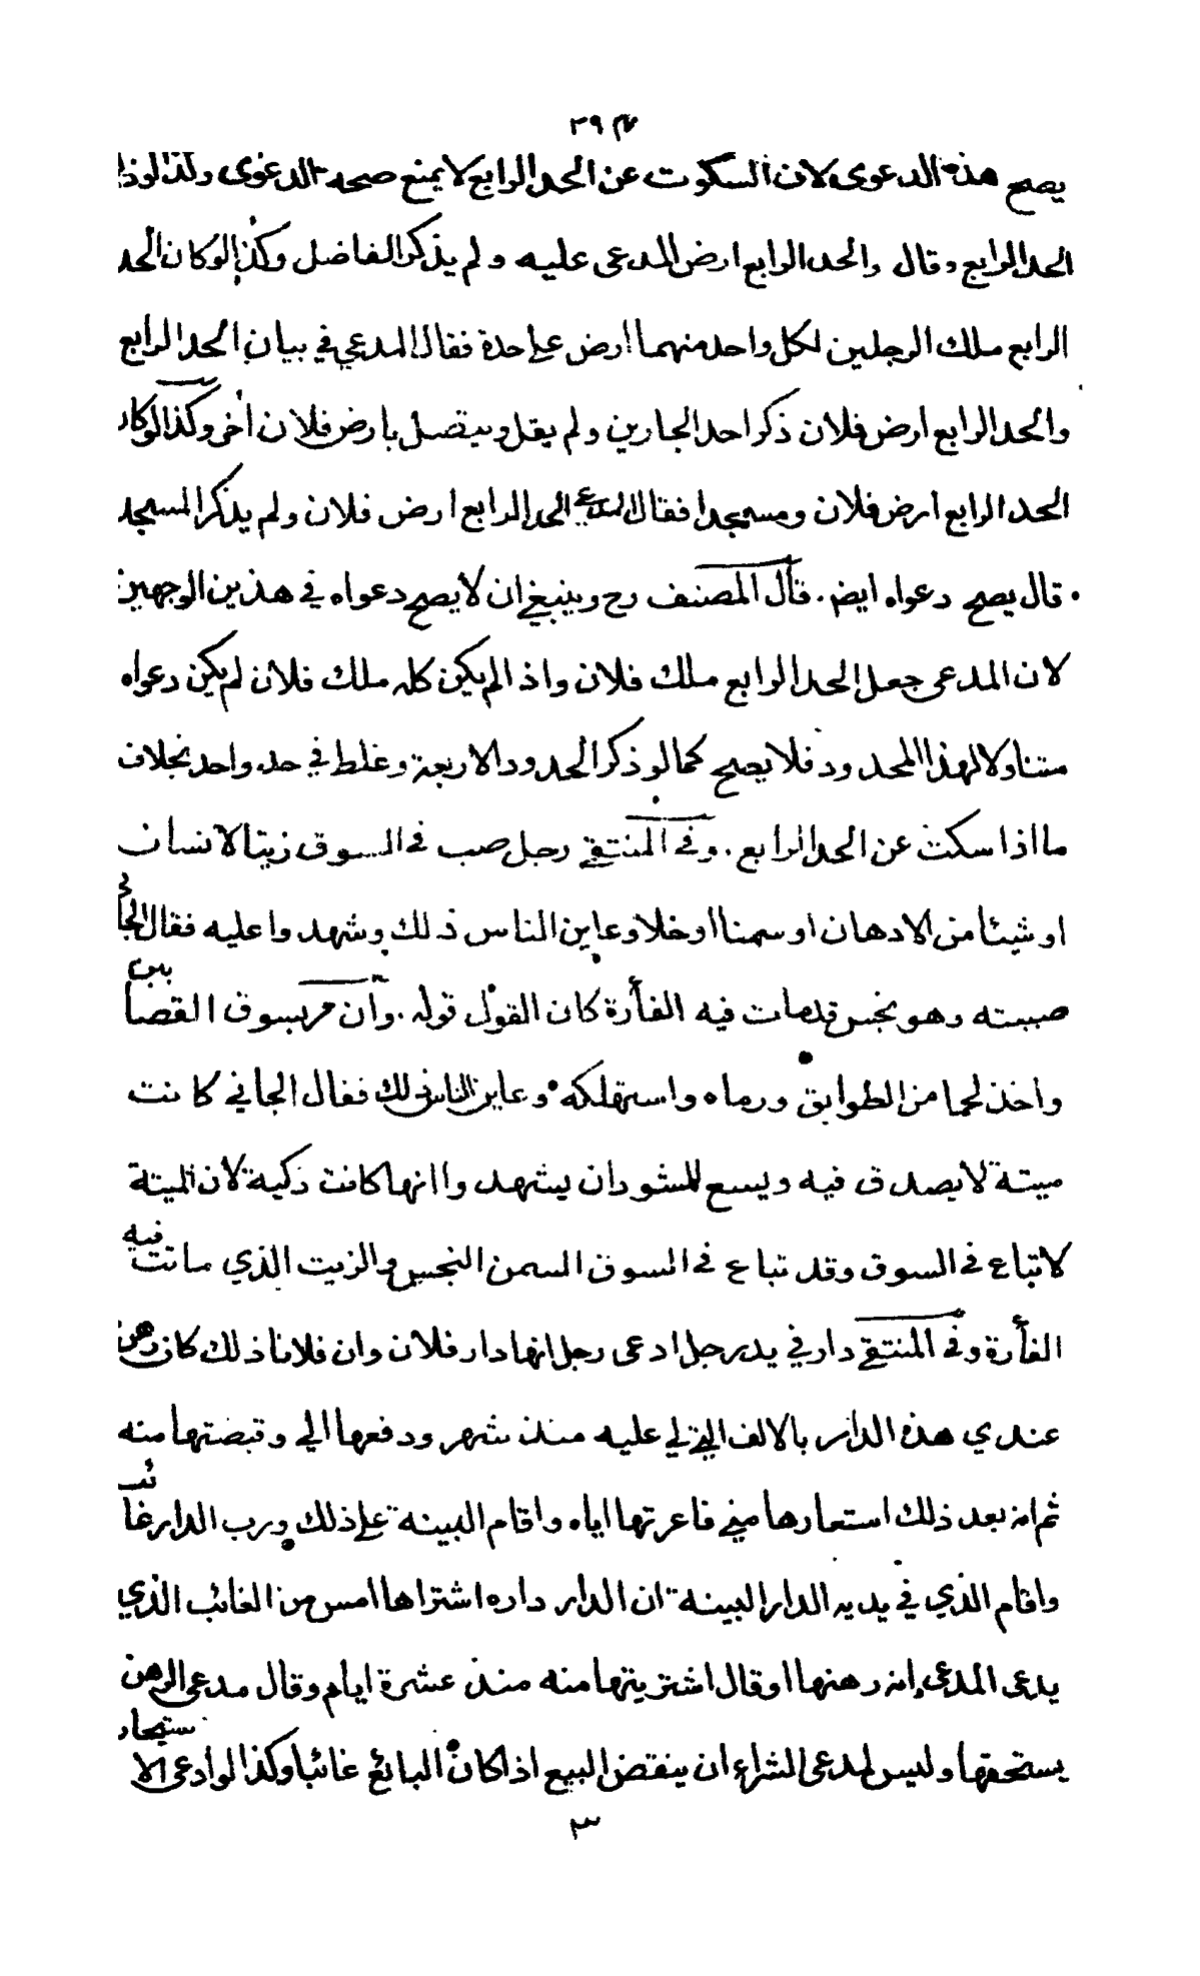 ٣٩٣
يصح هذه الدعوى لان السكوت عن الحد الرابع لا يمنع صحة الدعوى ولذا لوذا
الحد الرابع وقال والحد الرابع ارض المدعى عليه ولم يذكر الفاضل وكذا لوكان الحد
الرابع ملك الرجلين لكل واحد منهما ارض علحدة فقال المدعي في بيان الحد الرابع
والحد الرابع ارض فلان ذكر احد الجارين ولم يقل ويتصل بارض فلان أخر وكذا لوكان
الحد الرابع ارض فلان ومسجدا فقال المدعي الحد الرابع ارض فلان ولم يذكر المسجد
قال يصح دعواه ايض. قال المصنف رح وينبغي ان لا يصح دعواه في هذين الوجهين
لان المدعى جعل الحد الرابع ملك فلان واذا لم يكن كله ملك فلان لم يكن دعواه
متناولا لهذا المحدود فلا يصح كما لو ذكر الحدود الاربعة وغلط في حد واحد بخلاف
ما اذا سكت عن الحد الرابع. وفي المنتقى رجل صب في السوق زيتا لانسان
او شيئا من الادهان او سمنا او خلا وعاين الناس ذلك وشهدوا عليه فقال الجاني
صببته وهو نجس قد مات فيه الفأرة كان القول قوله. وان مر بسوق القصابين
واخذ لحما من الطوابق ورماه واستهلكه وعاين الناس ذلك فقال الجاني كانت
ميتة لا يصدق فيه ويسع للشودان يشهدوا انها كانت ذكية لان الميتة
لا تباع في السوق وقد تباع في السوق السمن النجس والزيت الذي ماتت فيه
الفأرة وفي المنتقى دار في يد رجل ادعى رجل انها دار فلان وان فلانا ذلك كان رهن
عندي هذه الدار بالالف التي لي عليه منذ شهر ودفعها الي وقبضتها منه
ثم انه بعد ذلك استعارها مني فاعرتها اياه واقام البينة على ذلك ورب الدار غائب
واقام الذي في يديه الدار البينة ان الدار داره اشتراها امس من الغائب الذي
يدعى المدعى انه رهنها او قال اشتريتها منه منذ عشرة ايام وقال مدعى الرهن
يستحقها وليس لمدعى الشراء ان ينقض البيع اذا كان البائع غائبا وكذا لو ادعى الاستيجار